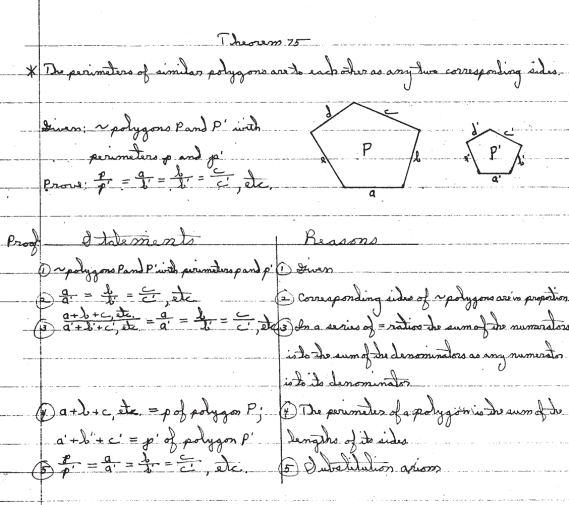 Theorem 75
* The perimeters of similar polygons are to each other as any two corresponding sides.
Given: ~ polygons P and P' with
perimeters p and p'
Prove: p/p' = a/b' = b/b' = c/c', etc.
d c
e P b
a
d' c'
e' P' b'
a'
Proof Statements Reasons
① ~ polygons P and P' with perimeters p and p' ① Given
② a/a' = b/b' = c/c', etc ② Corresponding sides of ~ polygons are in proportion
③ a+b+c, etc/a'+b'+c', etc = a/a' = b/b' = c/c', etc ③ In a series of = ratios the sum of the numerators
is to the sum of the denominators as any numerator
is to its denominator
④ a+b+c, etc = p of polygon P; ④ The perimeter of a polygon is the sum of the
a'+b'+c' = p' of polygon P' lengths of its sides
⑤ p/p' = a/a' = b/b' = c/c', etc. ⑤ Substitution axiom